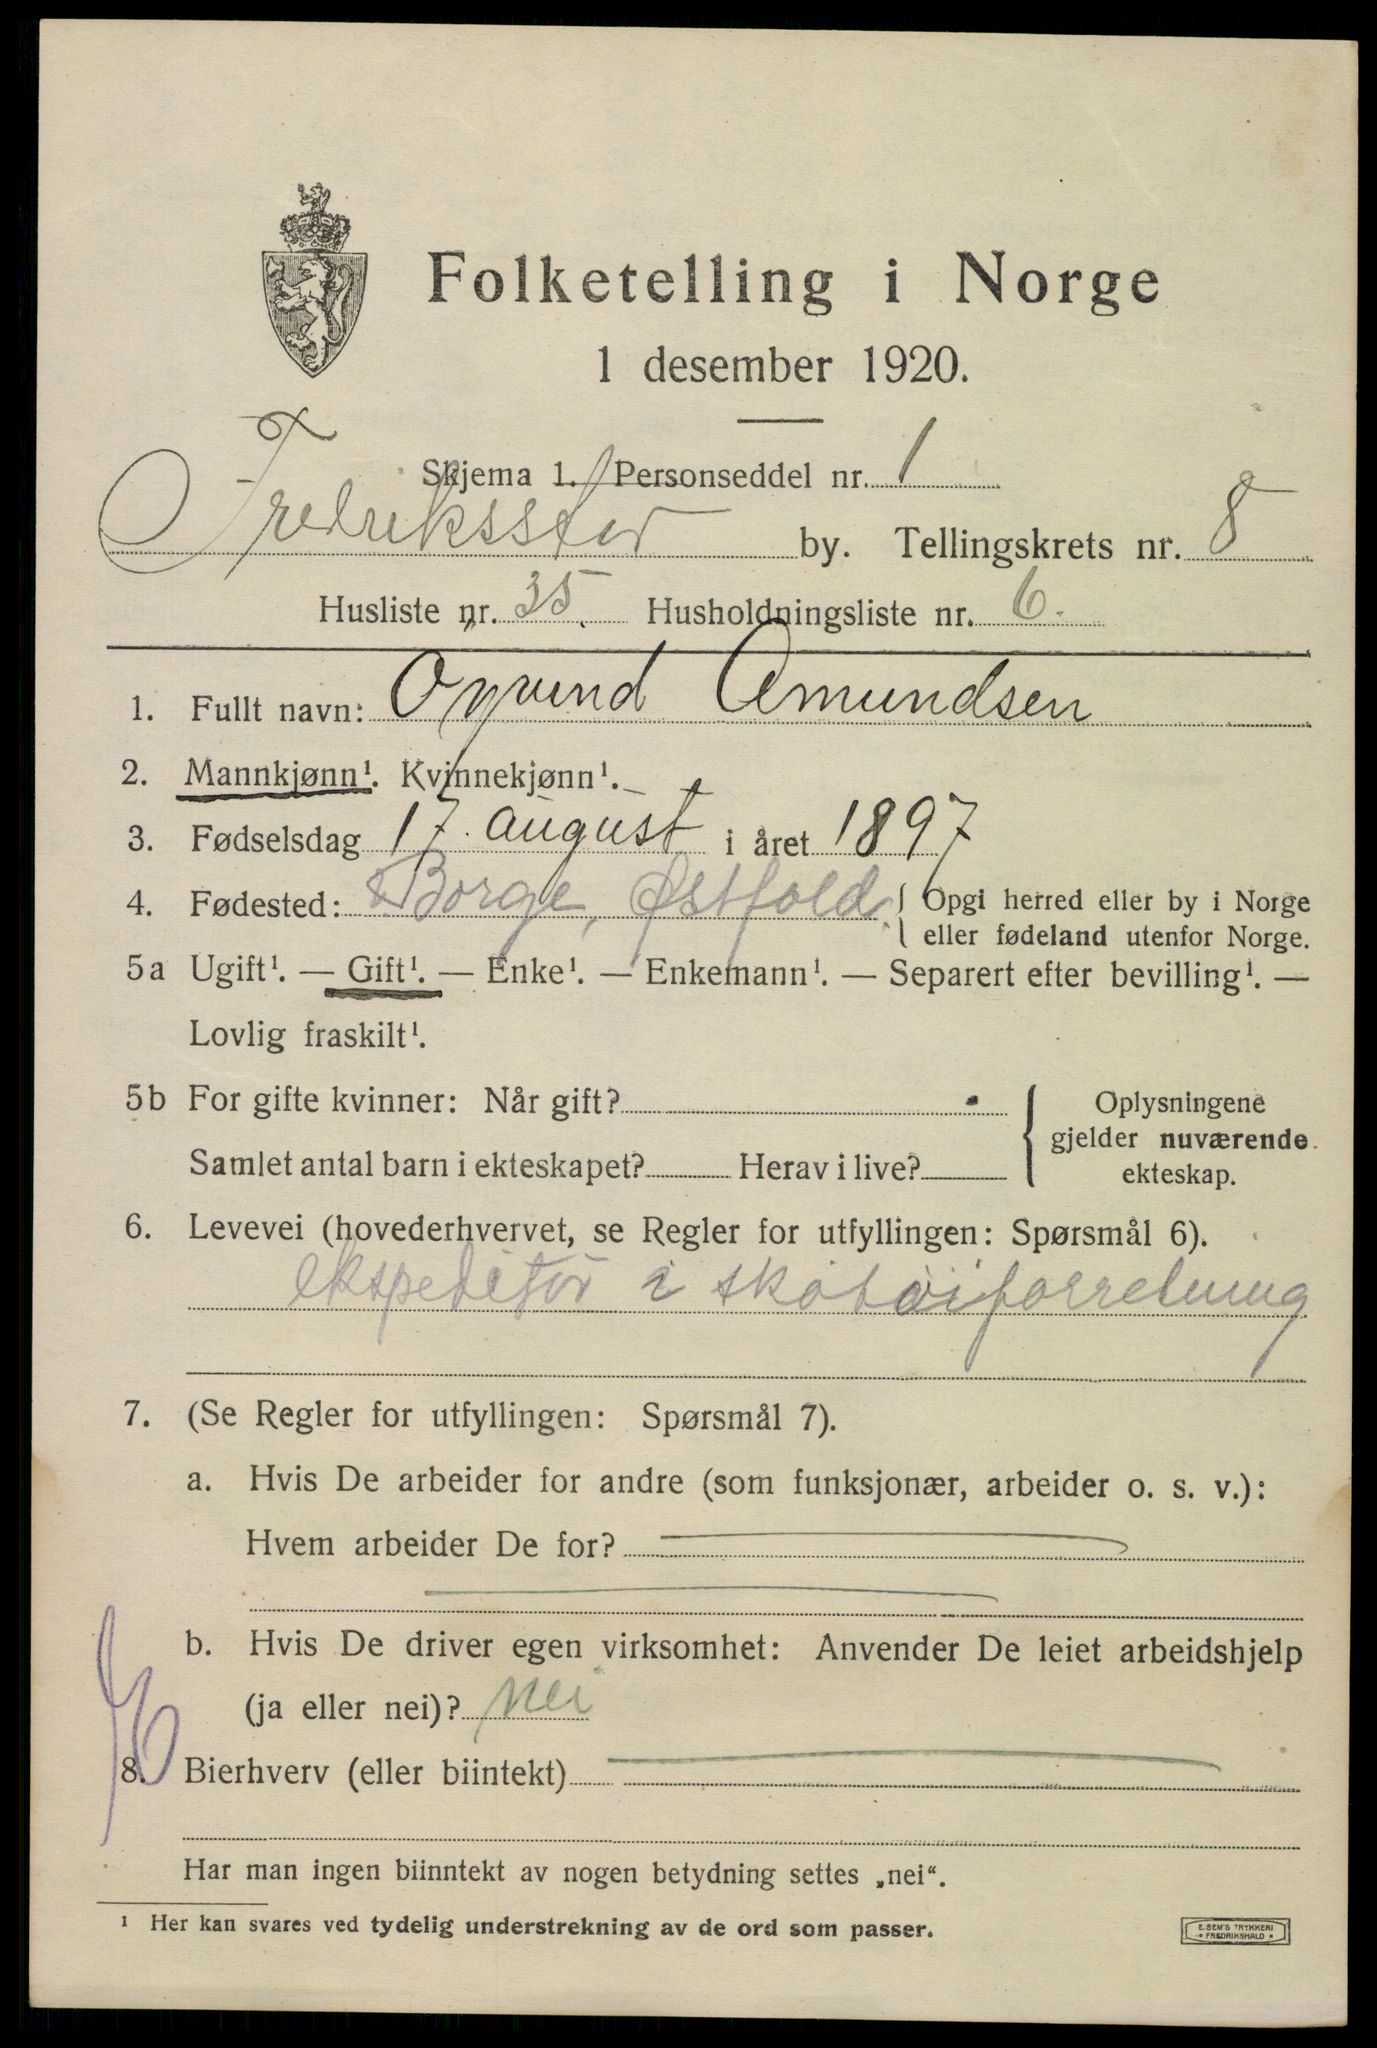 Folketelling i Norge
1 desember 1920.
Skjema 1. Personseddel nr. 1
Fredriksstad by. Tellingskrets nr. 8
Husliste nr. 35. Husholdningsliste nr. 6.
1. Fullt navn: Öyvind Amundsen
2. Mannkjønn¹. Kvinnekjønn¹.
3. Fødselsdag 17. august i året 1897
4. Fødested: Borge, Østfold. { Opgi herred eller by i Norge
eller fødeland utenfor Norge.
5a Ugift¹. — Gift¹. — Enke¹. — Enkemann¹. — Separert efter bevilling¹. —
Lovlig fraskilt¹.
5b For gifte kvinner: Når gift? { Oplysningene
gjelder nuværende
Samlet antal barn i ekteskapet? Herav i live? ekteskap.
6. Levevei (hovederhvervet, se Regler for utfyllingen: Spørsmål 6).
Ekspeditør i skotöiforretning
7. (Se Regler for utfyllingen: Spørsmål 7).
a. Hvis De arbeider for andre (som funksjonær, arbeider o. s. v.):
Hvem arbeider De for?
b. Hvis De driver egen virksomhet: Anvender De leiet arbeidshjelp
(ja eller nei)? nei
8. Bierhverv (eller biintekt)
Har man ingen biinntekt av nogen betydning settes „nei“.
¹ Her kan svares ved tydelig understrekning av de ord som passer.
E. SEM'S TRYKKERI
FREDRIKSHALD